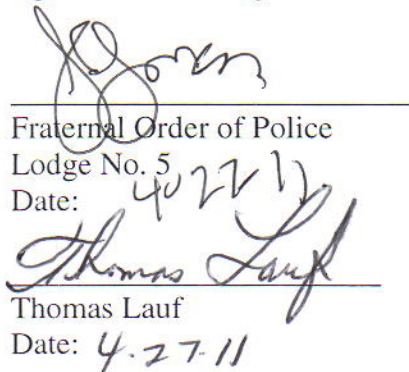 Fraternal Order of Police
Lodge No. 5
Date:
Thomas Lauf
Thomas Lauf
Date: 4.27.11